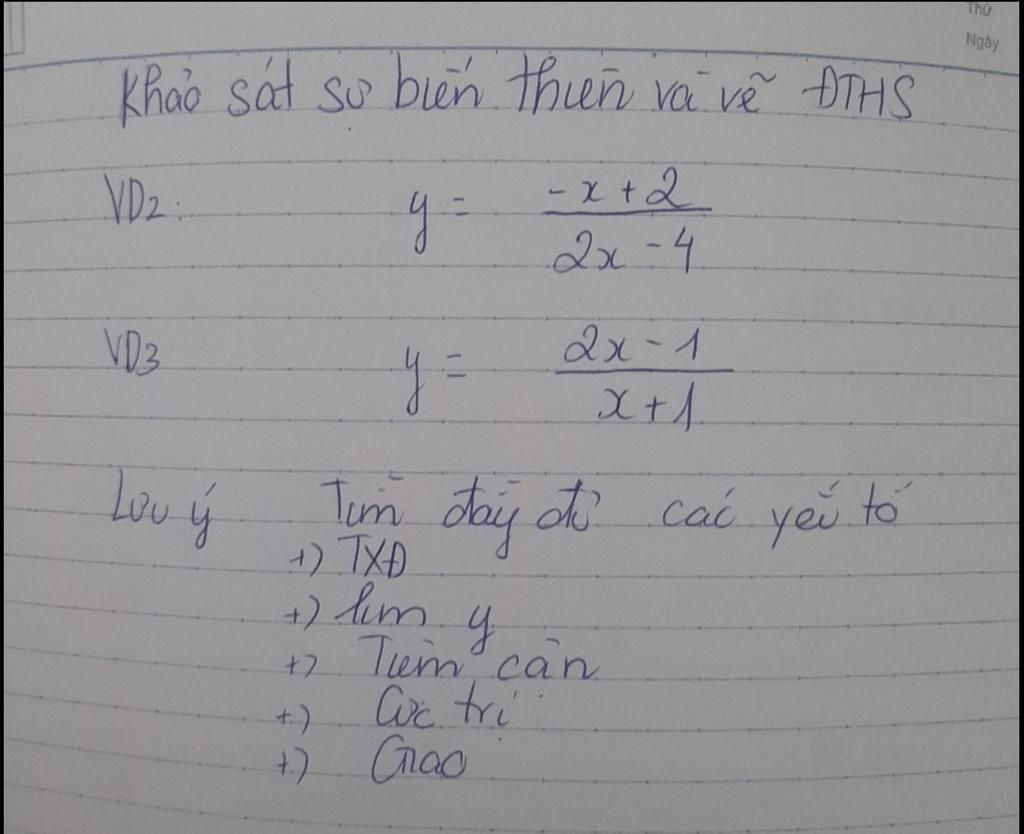 Thứ
Ngày
Khảo sát sự biến thiên và vẽ ĐTHS
VD2: y = \frac{-x+2}{2x-4}
VD3 y = \frac{2x-1}{x+1}
Lưu ý Tìm đầy đủ các yếu tố
+) TXĐ
+) lim y
+) Tiệm cận
+) Cực trị
+) Giao